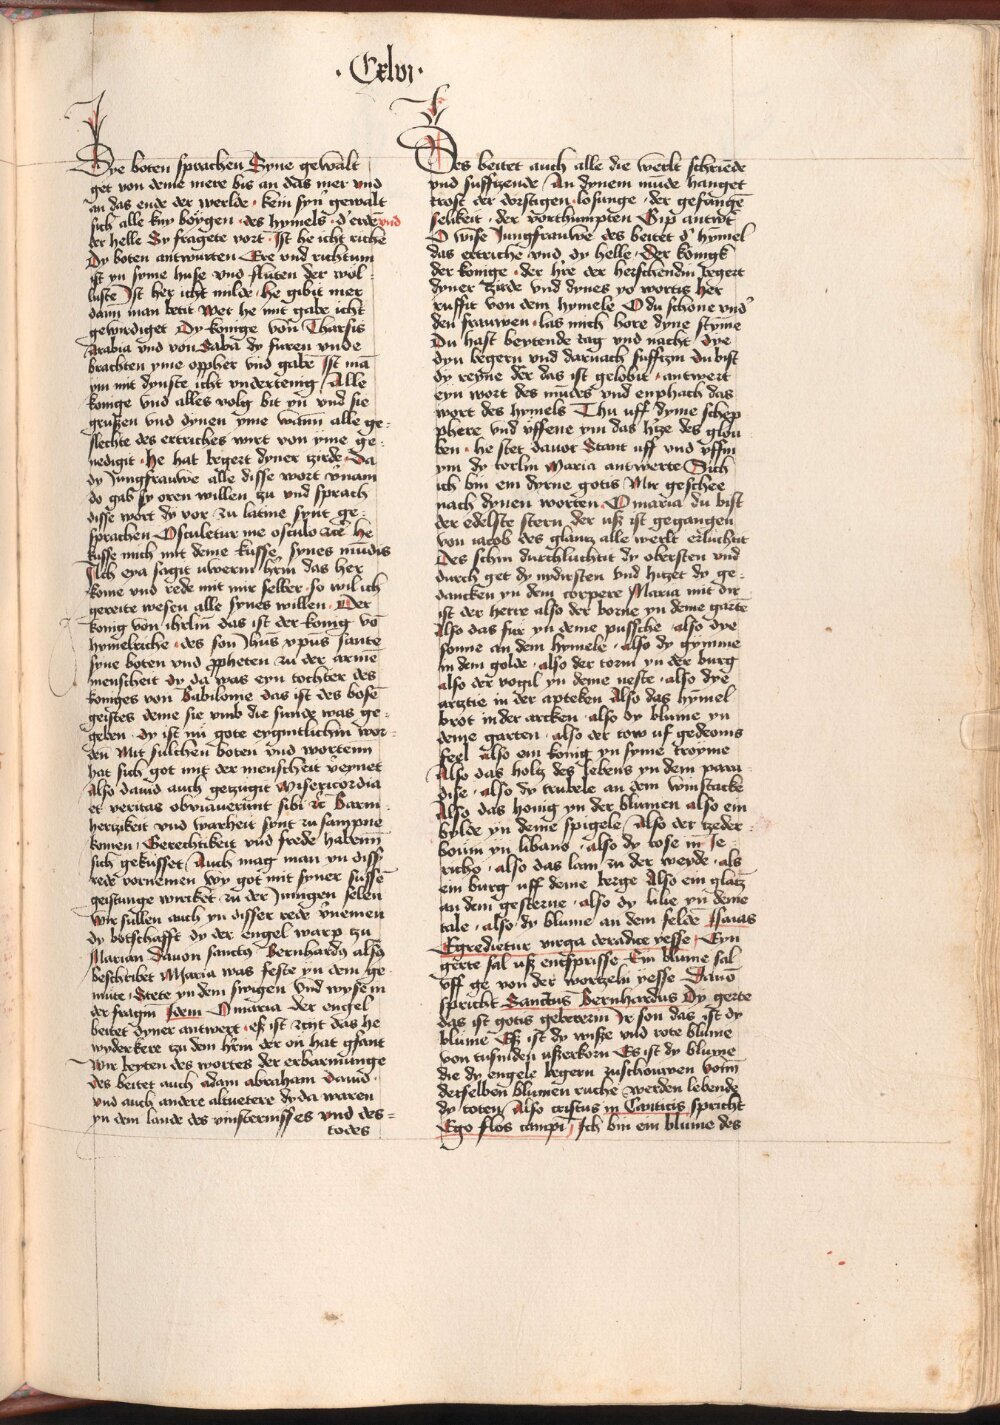 · Cxlvi ·
Dye boten sprachen Syne gewalt
get von deme mere bis an das mer vnd
an das ende der werlde · kein syn' gewalt
sich alle kny böygen · des hymels · d' erden vnd
der helle Sy fragete vort · Ist he icht riche
Dy boten antwurten Ere vnd richtum
ist yn syme huse vnd fluten der wol-
luste Ist her icht milde · he gibit mer
dann man betit Wer he mit gabe icht
gewirdiget Dy konige von Tharsis
Arabia vnd von Saba dy furen vnde
brachten yme oppher vnd gabe Ist mā
ym mit dynste icht vnderteinig Alle
konige vnd alles volg bit yn vnd sie
grußen vnd dynen yme wann alle ge-
slechte des ertriches wirt von yme ge-
nedigit · He hat begert dyner zirde · Da
dy Jungfrauwe alle disse wort v'nam
do gab sy oren willen zu vnd sprach
disse wort dy vor zu latine synt ge-
sprochen Osculetur me osculo etc̄ He
kusse mich mit deme kusse synes mūdis
Ich eya sagit uwerm h'rn das her
kome vnd rede mit mir selber · so wil ich
gereite wesen alle synes willen · Der
konig von ih'rlm̄ das ist der konig vō
hymelriche · des son Jhūs xp̄us sante
syne boten vnd ꝓpheten zu der armē
menscheit dy da was eyn tochter des
koniges von Babilonie das ist des bosē
geistes deme sie vmb die sunde was ge-
geben · dy ist nū gote eygintlichin wor-
den Mit sulchen boten vnd wortenn
hat sich got mit der menscheit v'eynet
Also dauid auch getzugit Misericordia
et veritas obviauerunt sibi etc̄ Barm-
hertzikeit vnd warheit synt zu sampne
komen · Gerechtikeit vnd frede habenn
sich gekusset Auch mag man yn disser
rede vornemen wy got mit syner sussē
geistunge wircket zu der Jnnigen selen
Wir sullen auch yn disser rede v'nemen
dy botschafft dy der engel warp tzu
Marian Dauon sanctus Bernhardus also
beschribet Maria was feste yn dem ge-
mute · Stete yn dem swigen vnd wyse in
der fragin Idem O maria der engel
beitet dyner antwert · eß ist zyt das he
wyderkere tzu dem h'rn der on hat gsant
Wir beyten des wortes der erbarmunge
Des beitet auch adam abraham Dauid ·
vnd auch andere altuetere dy da waren
yn dem lande des vinsternisses vnd des-
todes
Des beitet auch alle die werlt schriende
vnd suffizende An dynem mūde hanget
trost der dorstigen · losunge · der gefangē
selikeit · der vorthumpten Gip antw't
O wise Jungfrauwe des beitet d' hymel
das ertriche vnd dy helle · Der konigk
der konige · der h're der herschendin begert
dyner zirde vnd dynes yo wortis her
ruffit von dem hymele O du schone vnd'
den frauwen · las mich hore dyne styme
Du hast beytende tag vnd nacht Dye
dyn begern vnd darnach suffizin Du bist
dy reyne der das ist gelobit · antwert
eyn wort des mūdes vnd enphach das
wort des hymels Thu uff dyme schep-
phere vnd vffene ym das hize des glou-
ben · he stet dauor Stant uff vnd vffin
ym dy torlin Maria antwerte Sich
ich bin ein dyrne gotis Mir geschee
nach dynen worten · O maria du bist
der edelste stern der uß ist gegangen
von iacob des glantz alle werlt erluchtit
Des schin durchluchtit dy obersten vnd
durch get dy nydirsten vnd hitzet dy ge-
dancken yn dem corpere Maria mit dir
ist der herre also der borne yn deme gartē
Also das fur yn deme pussche · also dye
sonne an dem hymele · also dy gymme
in dem golde · also der torm yn der burg
also der vogil yn deme neste · also dye
artztie in der apteken Also das hymel-
brot in der arcken · also dy blume yn
deme garten · also der tow uf gedeonis
feel Also ein konig yn syme troyme
Also das holtz des lebens yn dem para-
dise · also dy trubele an dem winstacke
Also das honig yn der blumen also ein
bylde yn deme spigele Also der tzeder-
bouim yn libano · also dy rose in Je-
richo · also das lam zu der weyde · als
ein burg uff deme berge Also ein glatz
an dem gesterne · also dy lilie yn deme
tale · also dy blume an dem felde Isaias
Egredietur virga deradice yesse · Eyn
gerte sal uß entsprisse Ein blume sal
vff ge von der wortzeln yesse Dauō
spricht Sanctus Bernhardus Dy gerte
das ist gotis gebererin Jr son das ist dy
blume Eß ist dy wisse vnd rote blume
von tusinden ußerkorn Es ist dy blume
die dy engele begern zuschouwen vōm
derselben blumen ruche werden lebende
dy toten Also cristus in Canticis spricht
Ego flos campi Ich bin ein blume des